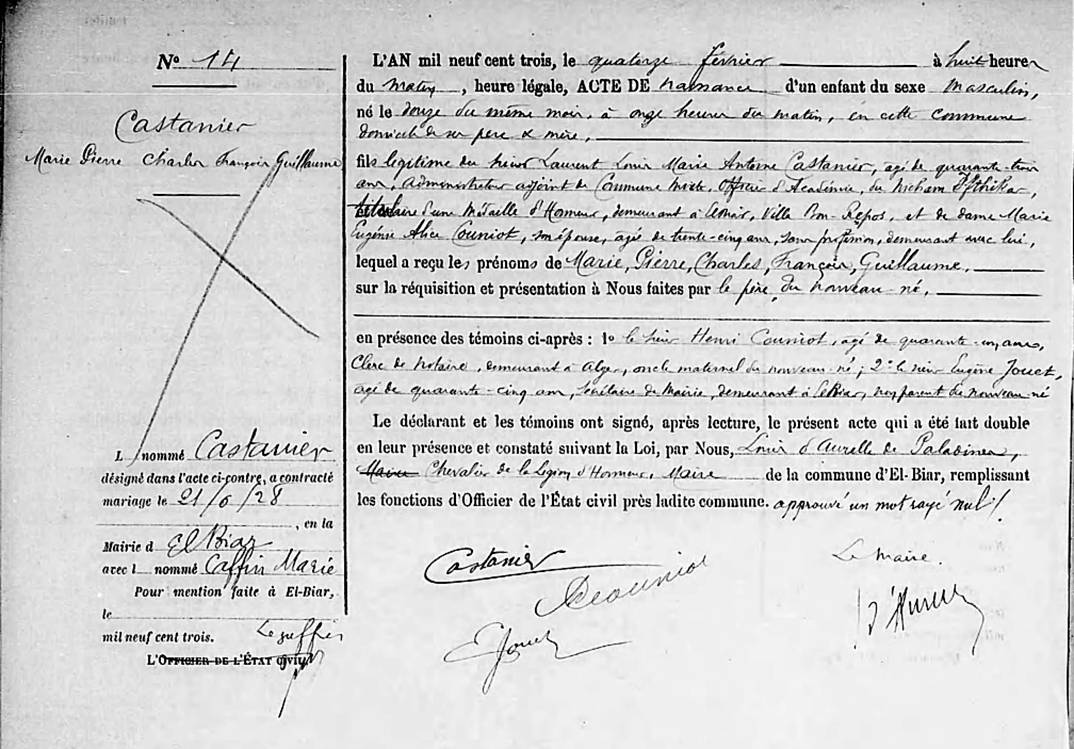 N° 14
Castanier
Marie Pierre Charles François Guillaume
L nommé Castanier
désigné dans l'acte ci-contre, a contracté
mariage le 21/6/28
, en la
Mairie d El Biar
avec l nommé Caffin Marie
Pour mention faite à El-Biar,
le
mil neuf cent trois.
Le greffier
L'OFFICIER DE L'ÉTAT civil
L'AN mil neuf cent trois, le quatorze février à huit heures
du matin, heure légale, ACTE DE naissance d'un enfant du sexe masculin,
né le douze du même mois, à onze heures du matin, en cette commune
domicile de ses père & mère,
fils légitime du sieur Laurent Louis Marie Antoine Castanier, agé de quarante-trois
ans, administrateur adjoint de Commune mixte, Officier d'Académie, du Nicham Iftikar,
titulaire d'une Médaille d'Honneur, demeurant à El Biar, Villa Bon-Repos, et de dame Marie
Eugénie Alice Couniot, son épouse, agée de trente-cinq ans, sans profession, demeurant avec lui,
lequel a reçu les prénoms de Marie, Pierre, Charles, François, Guillaume.
sur la réquisition et présentation à Nous faites par le père du nouveau-né,
en présence des témoins ci-après : 1° le sieur Henri Couniot, agé de quarante-un ans,
Clerc de Notaire, demeurant à Alger, oncle maternel du nouveau-né ; 2° le sieur Eugène Jouet,
agé de quarante-cinq ans, Secrétaire de Mairie, demeurant à El Biar, non parent du nouveau-né
Le déclarant et les témoins ont signé, après lecture, le présent acte qui a été fait double
en leur présence et constaté suivant la Loi, par Nous, Louis d'Aurelle de Paladines,
Maire Chevalier de la Légion d'Honneur, Maire de la commune d'El-Biar, remplissant
les fonctions d'Officier de l'État civil près ladite commune. approuvé un mot rayé nul !
Castanier
Couniot
Le Maire.
E Jouet
d'Aurelle